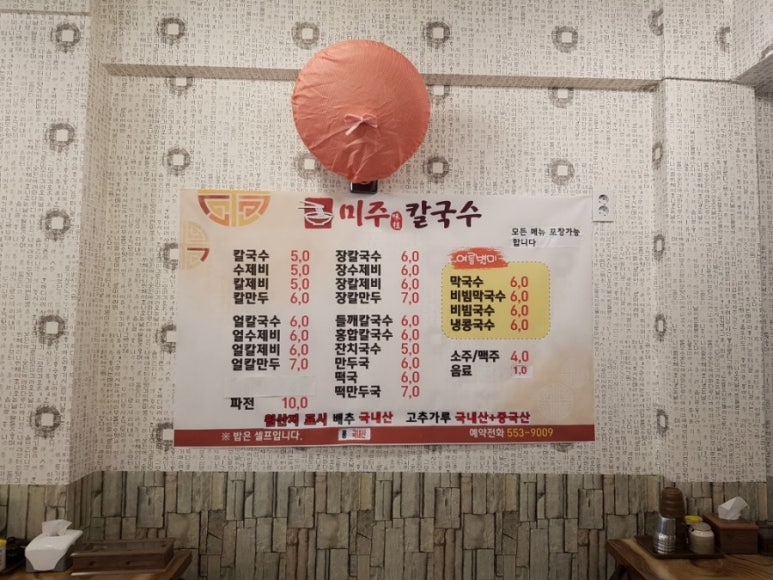 미주 칼국수
모든 메뉴 포장가능
합니다
칼국수 5,0
수제비 5,0
칼제비 5,0
칼만두 6,0
얼칼국수 6,0
얼수제비 6,0
얼칼제비 6,0
얼칼만두 7,0
파전 10,0
장칼국수 6,0
장수제비 6,0
장칼제비 6,0
장칼만두 7,0
들깨칼국수 6,0
홍합칼국수 6,0
잔치국수 5,0
만두국 6,0
떡국 6,0
떡만두국 7,0
여름별미
막국수 6,0
비빔막국수 6,0
비빔국수 6,0
냉콩국수 6,0
소주/맥주 4,0
음료 1,0
원산지 표시 배추 국내산 고추가루 국내산+중국산
※ 밥은 셀프입니다. 콩 국내산 예약전화 553-9009